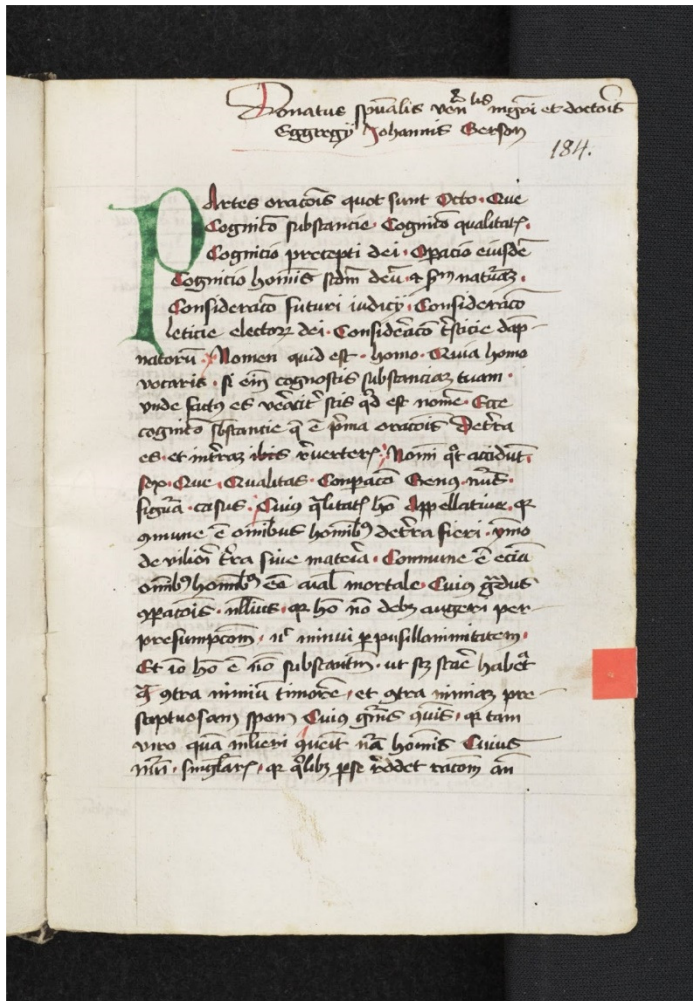 Donatus spualis ven lis mgri et doctoris
Eggregij Johannis Gerson
184.
PArtes oracois quot sunt Octo. Que
Cognico substancie. Cognico qualitatis.
Cognicio precepti dei. Opacio eiusde
Cognicio homis scdm deu. et scdm natura.
Consideraco futuri iudicij. Consideraco
leticie electorum dei. Consideraco tristicie dap-
natoru. Nomen quid est. homo. Quia homo
vocaris. si eim cognostis substanciam tuam.
vnde factus es veracit scis qd est nome. Ecce
cognico sbstancie q e pma oracois De tra
es. et in tram ibis reverteris. Nomi qt accidut.
sex. Que. Qualitas. Conpaco Genus. nus.
figura. casus. Cuius qlitatis ho Appellative. qr
comune e omibus homibus de tra fieri. ymo
de viliori tra sive materia. Commune e ecia
omibus homibus ee aial mortale. Cuius gradus
conparacois. nllius. qr ho no debet augeri per
presumpcom. nec minui per pusillanimitatem.
Et io ho e no substantivu. ut scz stare habeat
contra nimiu timore. et contra nimiam pre
sumptuosam spem Cuius gnis quis. qr tam
viro qua mlieri quenit nra homis Cuius
nri. singlaris. qr qlibet per se reddet racom an